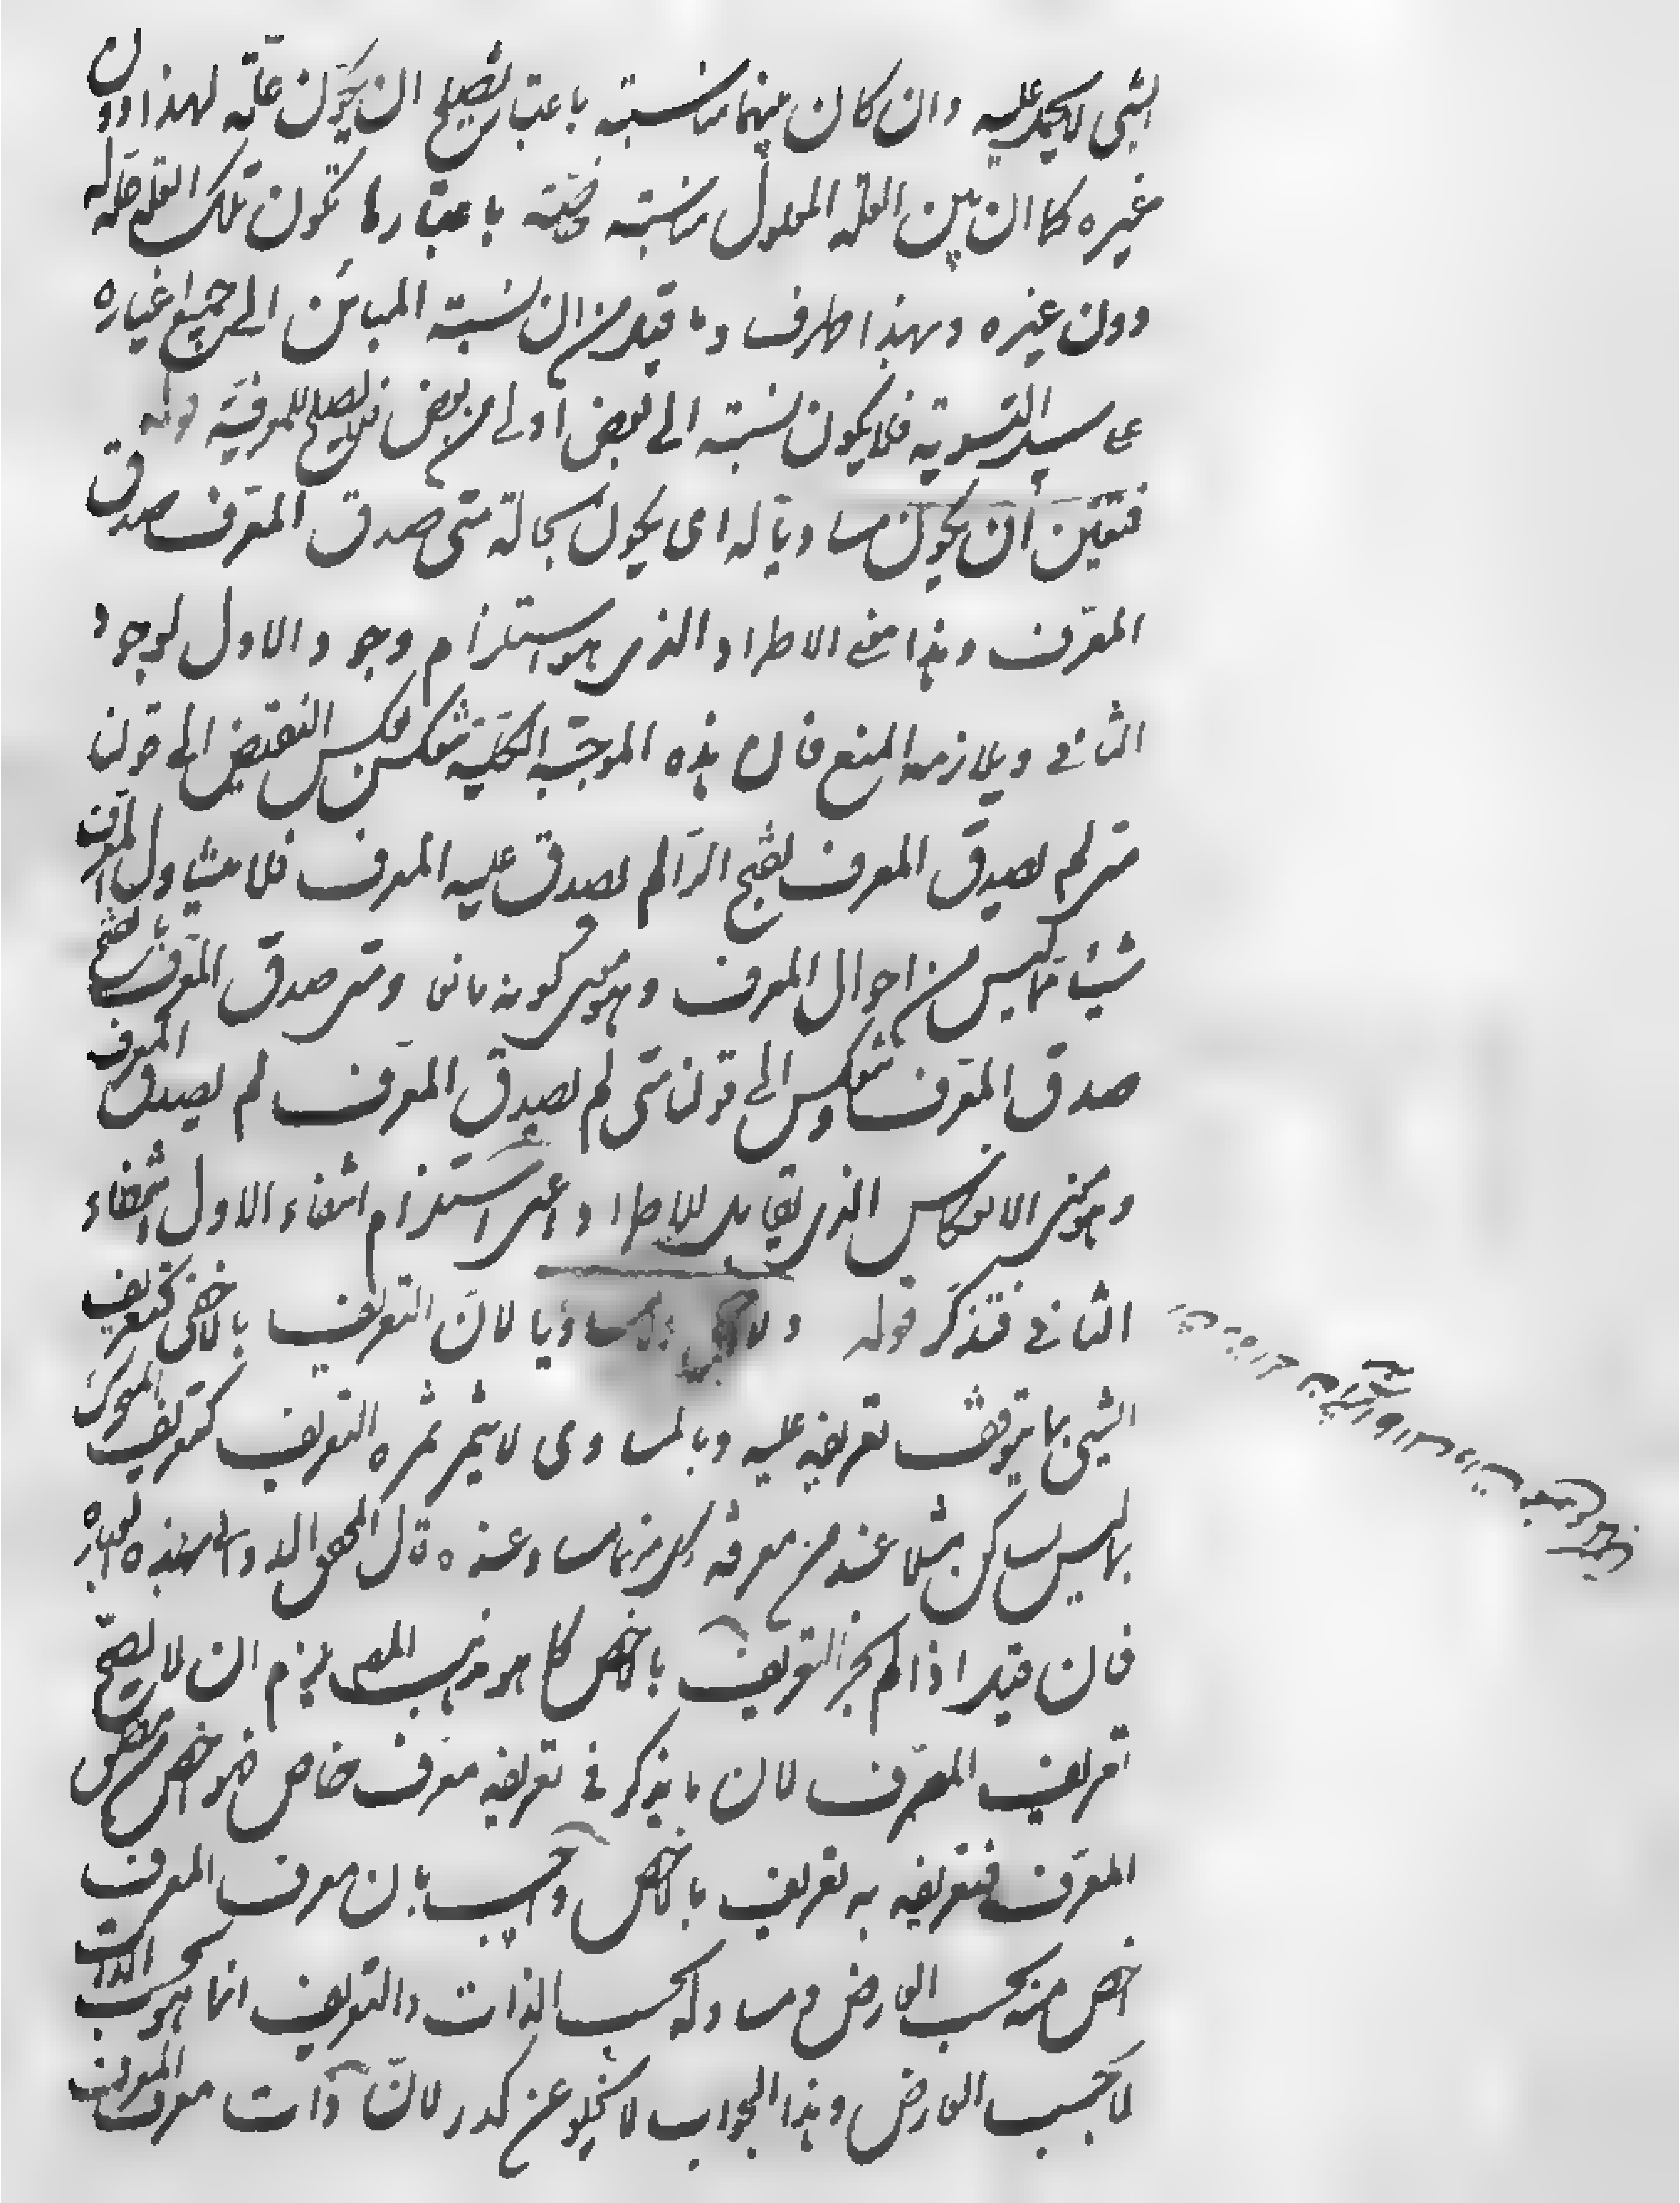 الشيء لا يحمل عليه وان كان بينهما مناسبته باعتبار يصلح ان يكون علة لهذا دون
غيره كما ان بين العلة المعلول مناسبته خاصته باعتبارها تكون تلك العلة علة له
دون غيره وبهذا ظرف وما قيل من ان نسبته المبائن الى جميع اغياره
على سبيل التسوية فلا يكون نسبته الى بعض اولى من بعض فلا يصلح للمعرفية قوله
فتعين أن يكون مساويا له اى يكون بحالة متى صدق المعرِّف صدق
المعرَّف وهذا معنى الاطراد الذى هو استلزام وجود الاول لوجود
الثانى ويلازمه المنع فان هذه الموجبة الكلية تنعكس بعكس النقيض الى قولنا
متى لم يصدق المعرف بفتح الرا لم يصدق عليه المعرف فلا يتناول المعرف
شيئا مما ليس من احوال المعرف وهو معنى كونه مانعا ومتى صدق المعرف بالفتح
صدق المعرف وينعكس الى قولنا متى لم يصدق المعرف لم يصدق المعرف
وهو معنى الانعكاس الذى يقابل للاطراد اعنى استلزام انتفاء الاول انتفاء
الثانى فتذكر قوله ولا مساويا لان التعريف بالاخفى كتعريف
الشيئ بما يتوقف تعريفه عليه وبالمساوى لا يثمر ثمره التعريف كتعريف المتحرك
بما ليس بساكن مثلا عند من معرفة كل منهما مساو عنده قال المحقق الدوانى بهذه العبارة
فان قيل اذا لم يجز التعريف بالاخص كما هو مذهب المص يلزم ان لا يصح
تعريف المعرف لان ما يذكر فى تعريفه معرف خاص فهو اخص من مطلق
المعرف فتعريفه به تعريف بالاخص واجيب بان معرف المعرف
اخص منه بحسب العارض ومساو له بحسب الذات والتعريف انما هو بحسب الذات
لا بحسب العارض وهذا الجواب لا يخلو عن كدر لان ذات معرف المعرف